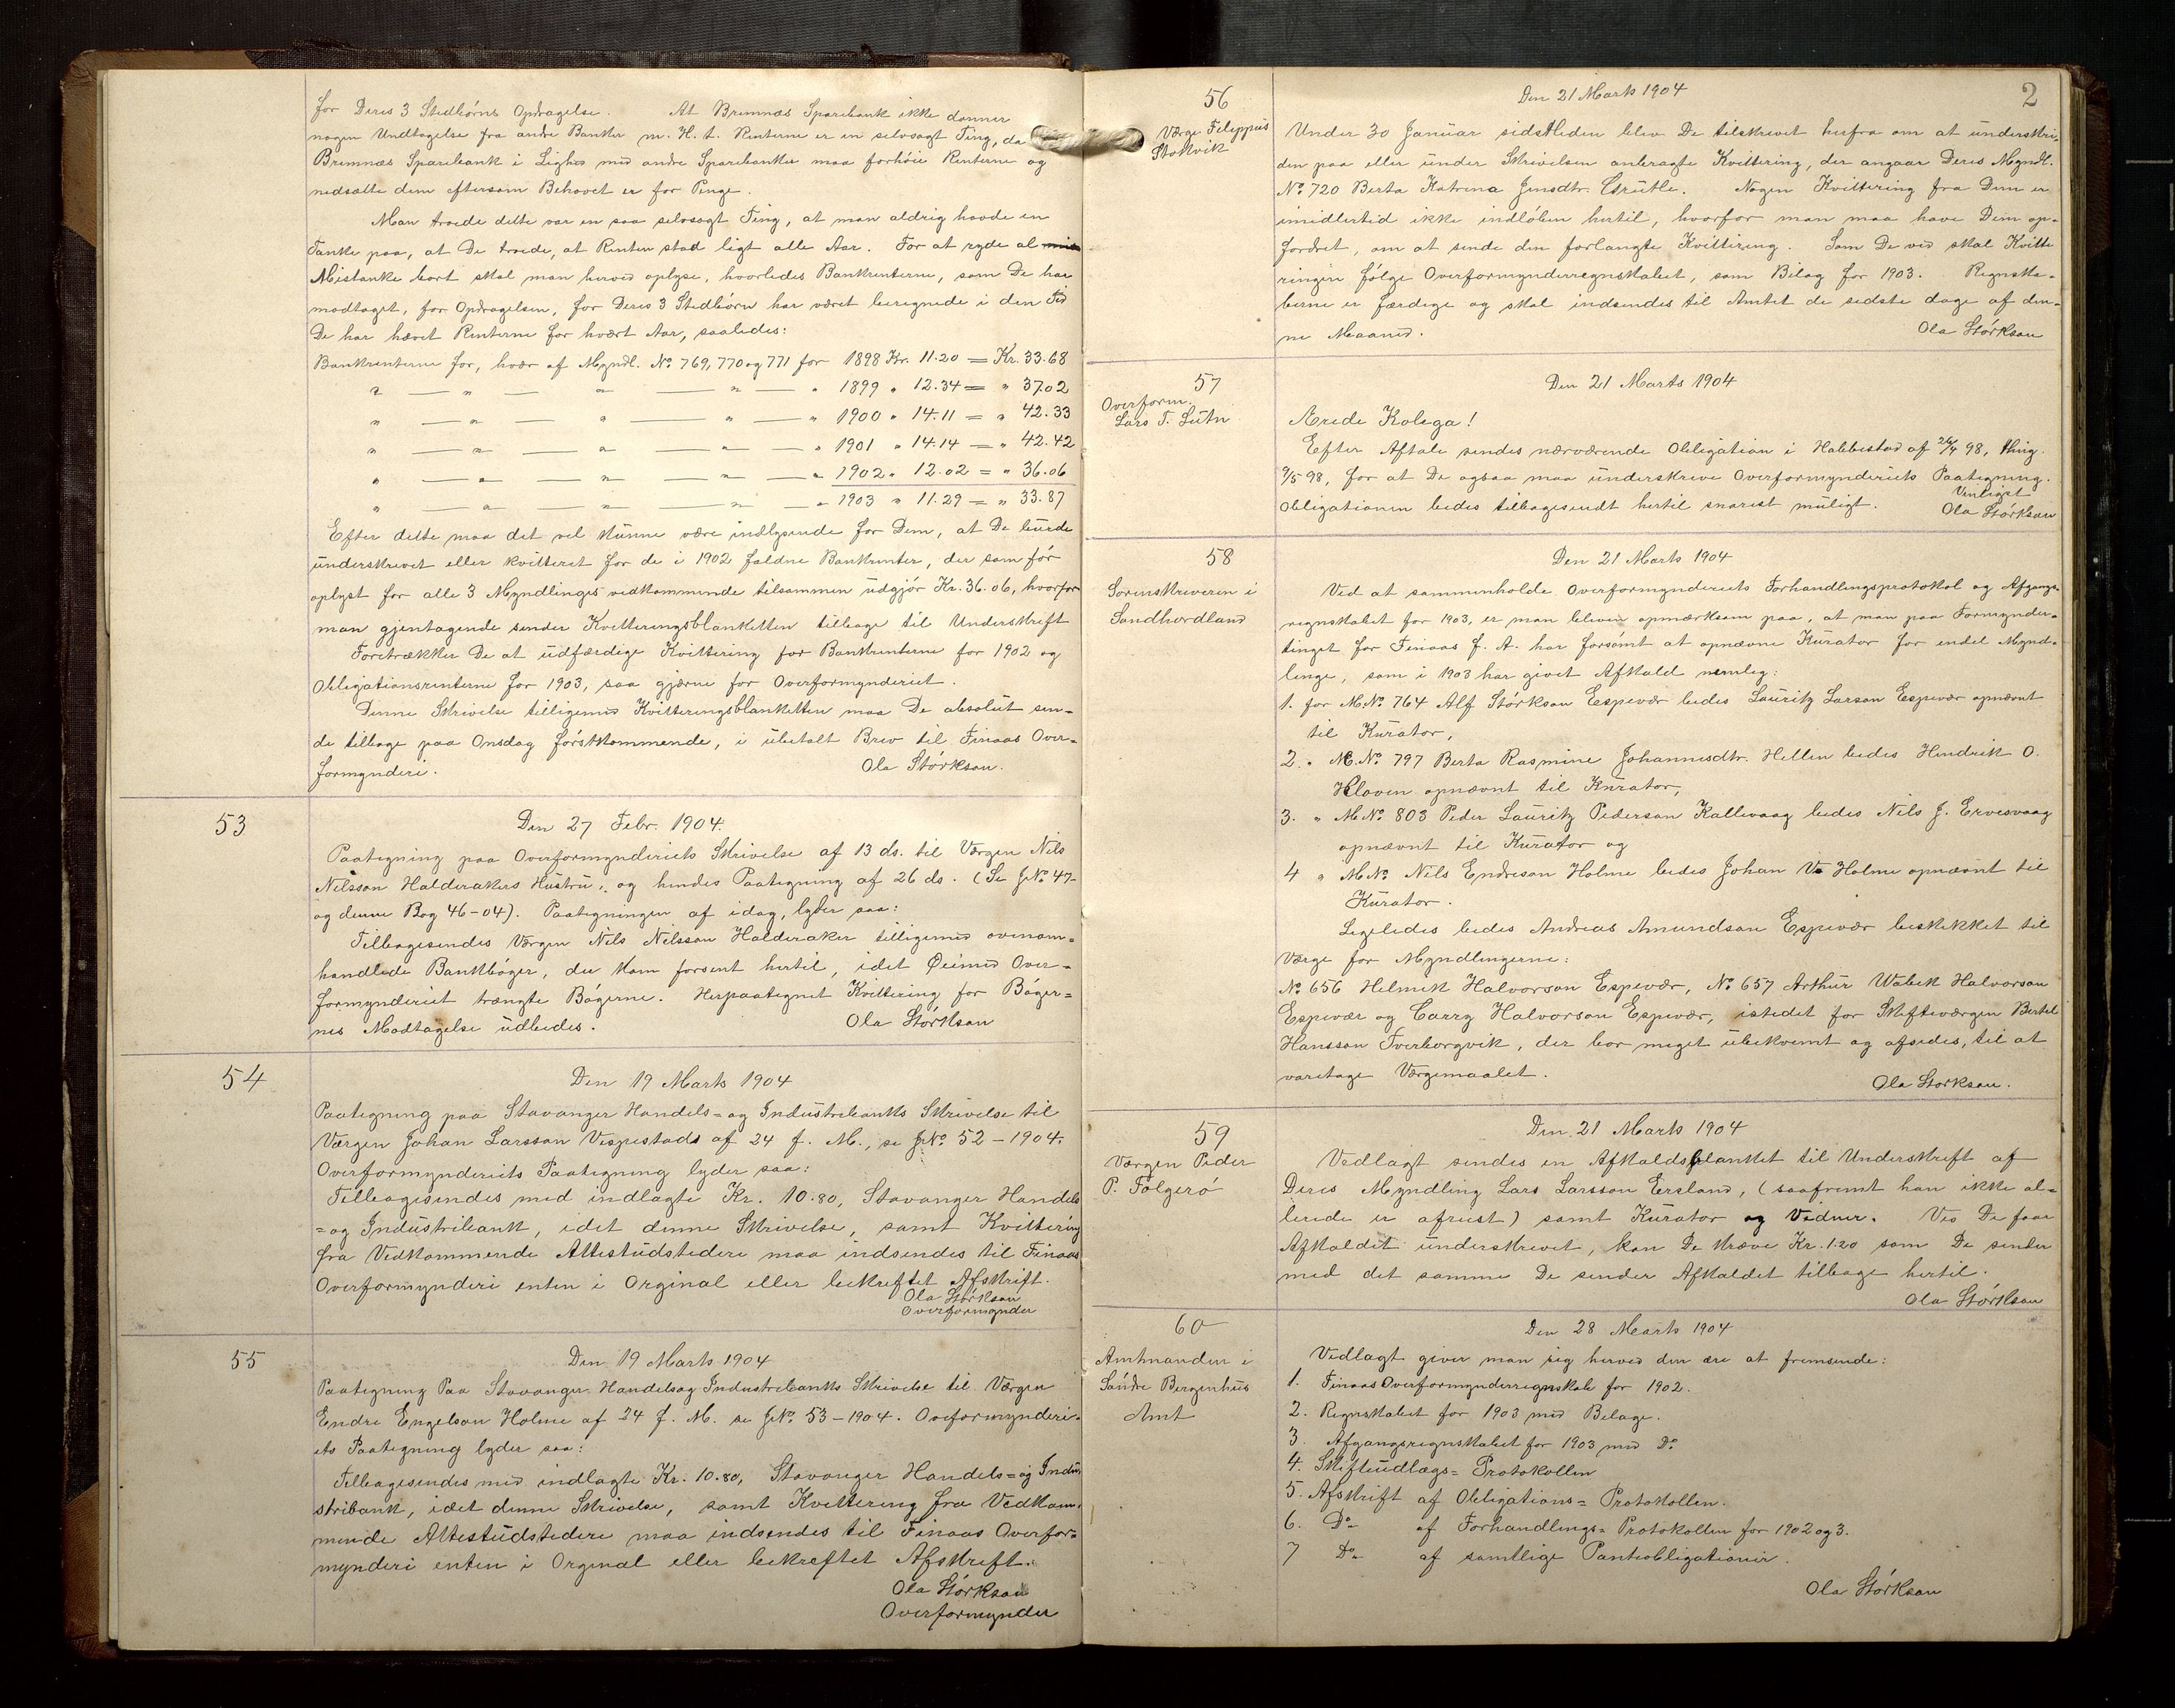 for Deres 3 Stedbørns Opdragelse. At Bremnæs Sparebank ikke danner
nogen Undtagelse fra andre Banker m. H. t. Renterne er en selvsagt Ting, da
Bremnæs Sparebank i Lighed med andre Sparebanker maa forhøie Renterne og
nedsætte dem eftersom Behovet er for Penge.
Man troede dette var en saa selvsagt Ting, at man aldrig havde en
Tanke paa, at De troede, at Renten stod ligt alle Aar. For at ryde al
Mistanke bort skal man herved oplyse, hvorledes Bankrenterne, som De har
modtaget, for Opdragelsen, for Deres 3 Stedbørn har været beregnede i den Tid
De har hævet Renterne for hvært Aar, saaledes:
Bankrenterne for, hvær af Myndl. No 769, 770 og 771 for 1898 Kr. 11.20 = Kr. 33.68
" — " — " — " — " 1899 " 12.34 = " 37.02
" — " — " — " — " 1900 " 14.11 = " 42.33
" — " — " — " — " 1901 " 14.14 = " 42.42
" — " — " — " — " 1902 " 12.02 = " 36.06
" — " — " — " — " 1903 " 11.29 = " 33.87
Efter dette maa det vel kunne være indlysende for Dem, at De burde
underskrevet eller kvitteret for de i 1902 faldne Bankrenter, der som før
oplyst for alle 3 Myndlinges vedkommende tilsammen udgjør Kr. 36.06, hvorfor
man gjentagende sender Kvitteringsblanketten tilbage til Underskrift
Foretrækker De at udfærdige Kvittering for Bankrenterne for 1902 og
Obligationsrenterne for 1903, saa gjærne for Overformynderiet.
Denne Skrivelse tilligemed Kvitteringsblanketten maa De absolut sen-
de tilbage paa Onsdag førstkommende, i ubetalt Brev til Finaas Over-
formynderi. Ola Størkson.
53
Den 27 Febr. 1904.
Paategning paa Overformynderiets Skrivelse af 13 ds. til Værgen Nils
Nilsson Halderakers Hustru, og hendes Paategning af 26 ds. (Se J.No 47-
og denne Bog 46-04). Paategningen af idag, lyder saa:
Tilbagesendes Værgen Nils Nilsson Halderaker tilligemed ovenom-
handlede Bankbøger, der kom forsent hertil, idet Øeimed Over-
formynderiet trængte Bøgerne. Herpaategnet Kvittering for Bøger=
nes Modtagelse udbedes. Ola Størkson
54
Den 19 Marts 1904
Paategning paa Stavanger Handels= og Industribanks Skrivelse til
Værgen Johan Larsson Vespestads af 24 f. M., se J.No 52-1904.
Overformynderiets Paategning lyder saa:
Tilbagesendes med indlagte Kr. 10.80, Stavanger Handels
=og Industribank, idet denne Skrivelse, samt Kvittering
fra Vedkommende Attestudstedere maa indsendes til Finaas
Overformynderi enten i Orginal eller bekreftet Afskrift.
Ola Størkson
Overformynder
55
Den 19 Marts 1904
Paategning Paa Stavanger Handelsog Industribanks Skrivelse til Værgen
Endre Engelson Holme af 24 f. M. se J.No. 53-1904. Overformynderi-
ets Paategning lyder saa:
Tilbagesendes med indlagte Kr. 10.80, Stavanger Handels=og Indu
stribank, idet denne Skrivelse, samt Kvittering fra Vedkom-
mende Attestudstedere maa indsendes til Finaas Overfor=
mynderi enten i Orginal eller bekreftet Afskrift.
Ola Størkson
Overformynder
2
56
Værge Filippus
Stokvik
Den 21 Marts 1904
Under 30 Januar sidstleden blev De tilskrevet herfra om at underskri-
den paa eller under Skrivelsen anbragte Kvittering, der angaar Deres Myndl.
No 720 Berta Katrina Jensdtr. Grutle. Nogen Kvittering fra Dem er
imidlertid ikke indløben hertil, hvorfor man maa have Dem op-
fordret, om at sende den forlangte Kvittering. Som De ved skal Kvitte
ringen følge Overformynderregnskabet, som Bilag for 1903. Regnska-
berne er færdige og skal indsendes til Amtet de sidste dage af den-
ne Maaned. Ola Størkson
57
Overform.
Lars T. Sutn
Den 21 Marts 1904
Ærede Kolega!
Efter Aftale sendes nærværende Obligation i Habbestad af 26/4 98, thing.
9/5 98, for at De ogsaa maa underskrive Overformynderiets Paategning.
Obligationen bedes tilbagesendt hertil snarest muligt. Venligst
Ola Størkson
58
Sorenskriveren i
Søndhordland
Den 21 Marts 1904
Ved at sammenholde Overformynderiets Forhandlingsprotokol og Afgangs-
regnskabet for 1903, er man bleven opmærksom paa, at man paa Formynder-
tinget for Finaas f. A. har forsømt at opnævne Kurator for endel Mynd-
linge, som i 1903 har givet Afkald nemleg:
1. for M.No. 764 Alf Størkson Espevær bedes Lauritz Larson Espevær opnævnt
til Kurator,
2. " M.No. 797 Berta Rasmine Johannesdtr. Hellen bedes Hendrik O.
Kloven opnævnt til Kurator,
3. " M.No. 803 Peder Lauritz Pederson Kallevaag bedes Nils J. Ervesvaag
opnævnt til Kurator og
4 " M.No. Nils Endreson Holme bedes Johan Holme opnævnt til
Kurator.
Ligeledes bedes Andreas Amundson Espevær beskikket til
Værge for Myndlingerne:
No 656 Helmik Halvorson Espevær, No 657 Arthur Wabek Halvorson
Espevær og Carry Halvorson Espevær, istedet for Skifteværgen Bertel
Hansson Tverborgvik, der bor meget ubekvemt og afsides, til at
varetage Værgemaalet.
Ola Størkson.
59
Værgen Peder
P. Følgerø
Den 21 Marts 1904
Vedlagt sendes en Afkaldsblanket til Underskrift af
Deres Myndling Lars Larsson Ersland, (saafremt han ikke al=
lerede er afreist) samt Kurator og Vedner. Ves De faar
Afkaldet underskrevet, kan De kræve Kr. 1.20 som De sender
med det samme De sender Afkaldet tilbage hertil.
Ola Størkson
60
Amtmanden i
Søndre Bergenhus
Amt
Den 28 Marts 1904
Vedlagt giver man sig herved den ære at fremsende:
1. Finaas Overformynderregnskab for 1902.
2. Regnskabet for 1903 med Belage.
3. Afgangsregnskabet for 1903 med Do
4. Skifteudlægs= Protokollen
5. Afskrift af Obligations= Protokollen.
6. Do af Forhandlings= Protokollen for 1902 og 3.
7 Do af samtlige Panteobligationer.
Ola Størkson